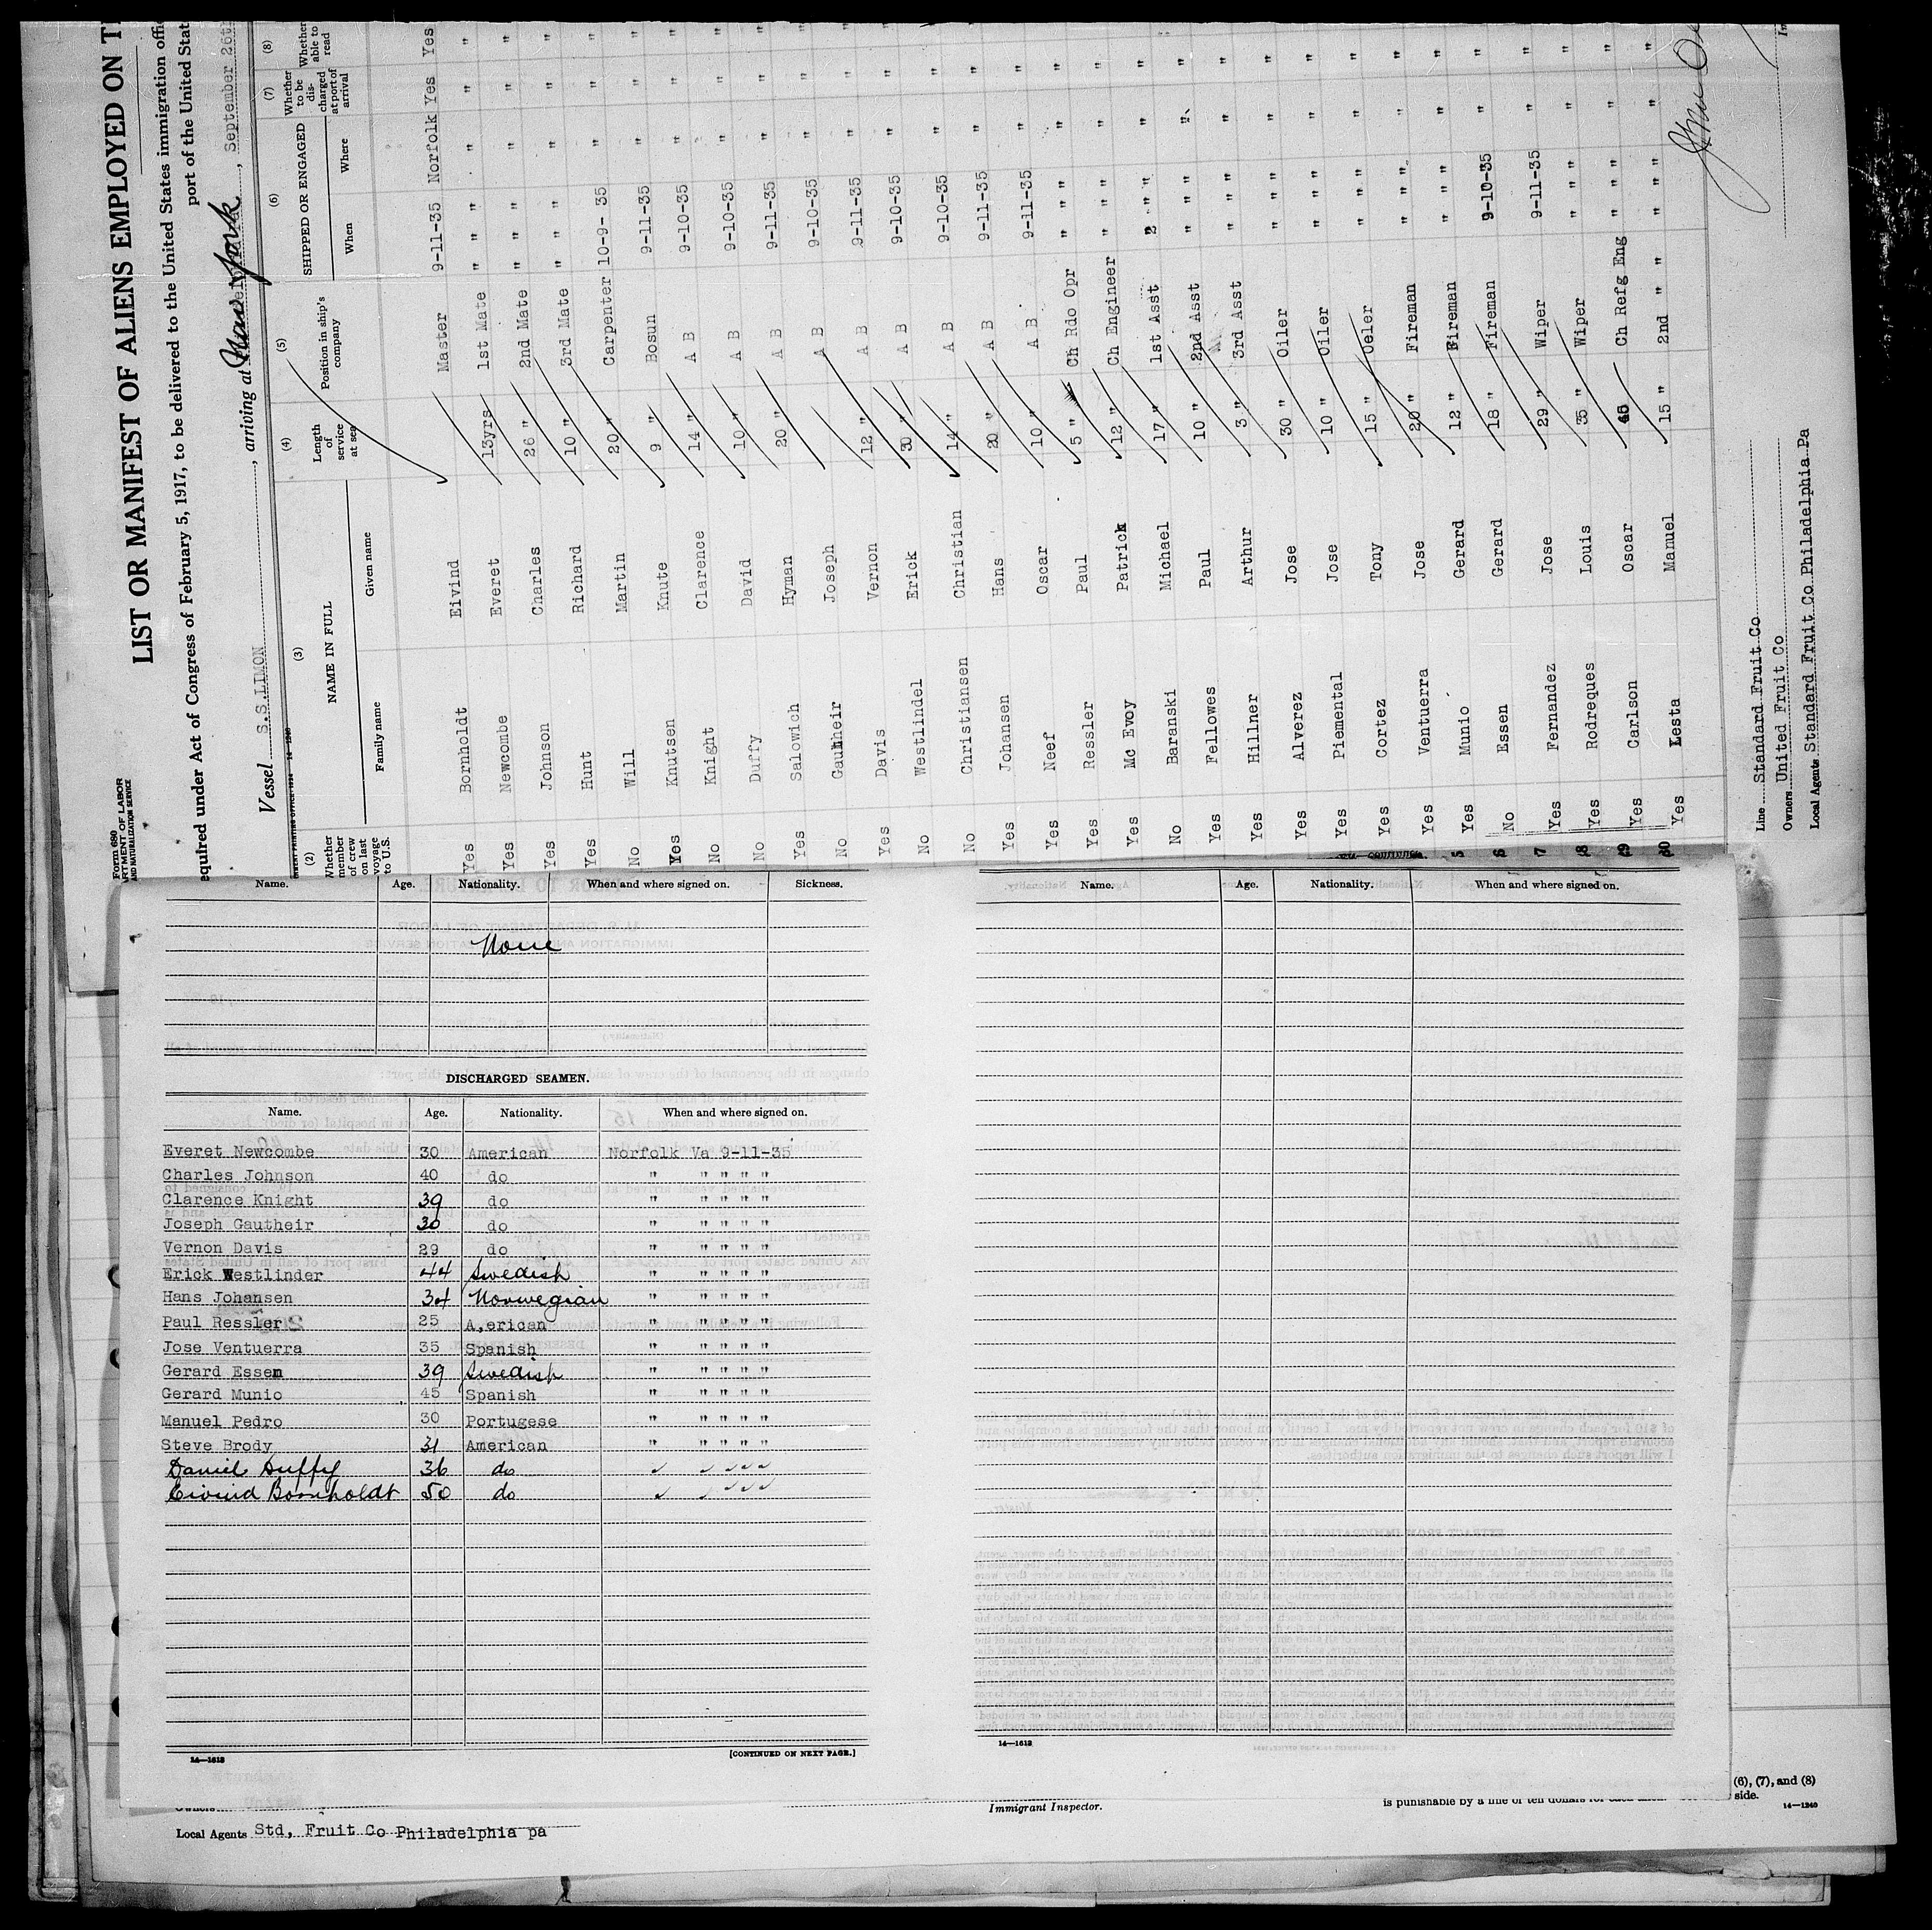 Form 680
LIST OR MANIFEST OF ALIENS EMPLOYED ON T
equired under Act of Congress of February 5, 1917, to be delivered to the United States immigration offi
port of the United Stat
Vessel S.S.LIMON, arriving at New York, September 26th
(2) (3) (4) (5) (6) (7) (8)
Whether member of crew on last voyage to U.S. NAME IN FULL Family name Given name Length of service at sea Position in ship's company SHIPPED OR ENGAGED When Where Whether to be discharged at port of arrival Whether able to read
Yes Bornholdt Eivind Master 9-11-35 Norfolk Yes Yes
Yes Newcombe Everet 13yrs 1st Mate " " " " " "
Yes Johnson Charles 26 " 2nd Mate " " " " " "
Yes Hunt Richard 10 " 3rd Mate " " " " " "
No Will Martin 20 " Carpenter 10-9- 35 " " "
Yes Knutsen Knute 9 " Bosun 9-11-35 " " "
No Knight Clarence 14 " A B 9-10-35 " " "
No Duffy David 10 " A B 9-10-35 " " "
Yes Salowich Hyman 20 " A B 9-11-35 " " "
No Gautheir Joseph A B 9-10-35 " " "
Yes Davis Vernon 12 " A B 9-11-35 " " "
No Westlindel Erick 30 " A B 9-10-35 " " "
No Christiansen Christian 14 " A B 9-10-35 " " "
Yes Johansen Hans 20 " A B 9-11-35 " " "
Yes Neef Oscar 10 " A B 9-11-35 " " "
Yes Ressler Paul 5 " Ch Rdo Opr " " " " " "
Yes Mc Evoy Patrick 12 " Ch Engineer " " " " " "
No Baranski Michael 17 " 1st Asst " " " " "
Yes Fellowes Paul 10 " 2nd Asst " " " " " "
Yes Hillner Arthur 3 " 3rd Asst " " " " " "
Yes Alverez Jose 30 " Oiler " " " " " "
Yes Piemental Jose 10 " Oiler " " " " " "
Yes Cortez Tony 15 " Oeler " " " " " "
Yes Ventuerra Jose 20 " Fireman " " " " " "
5 Yes Munio Gerard 12 " Fireman " " " " " "
6 No Essen Gerard 18 " Fireman 9-10-35 " " "
7 Yes Fernandez Jose 29 " Wiper 9-11-35 " " "
8 Yes Rodreques Louis 35 " Wiper " " " " " "
9 Yes Carlson Oscar Ch Refg Eng " " " " " "
30 Yes Lesta Manuel 15 " 2nd " " " " " " " "
Line Standard Fruit Co
Owners United Fruit Co
Local Agents Standard Fruit Co Philadelphia Pa
Name. Age. Nationality. When and where signed on. Sickness.
None
DISCHARGED SEAMEN.
Name. Age. Nationality. When and where signed on.
Everet Newcombe 30 American Norfolk Va 9-11-35
Charles Johnson 40 do " " " " "
Clarence Knight 39 do " " " " "
Joseph Gautheir 30 do " " " " "
Vernon Davis 29 do " " " " "
Erick Westlinder 44 Swedish " " " " "
Hans Johansen 34 Norwegian " " " " "
Paul Ressler 25 A,erican " " " " "
Jose Ventuerra 35 Spanish " " " " "
Gerard Essen 39 Swedish " " " " "
Gerard Munio 45 Spanish " " " " "
Manuel Pedro 30 Portugese " " " " "
Steve Brody 31 American " " " " "
Daniel Duffy 36 do " " " " "
Eivind Bornholdt 50 do " " " " "
14—1613
[CONTINUED ON NEXT PAGE.]
Name. Age. Nationality. When and where signed on.
14—1613
(6), (7), and (8)
side.
14—1240
Owners
Immigrant Inspector.
Local Agents Std, Fruit Co Philadelphia pa